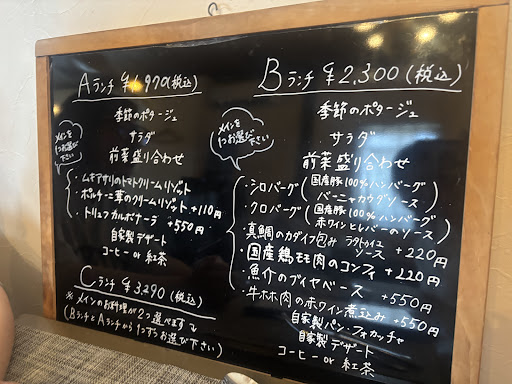 Aランチ ¥1,970(税込)
季節のポタージュ
サラダ
前菜盛り合わせ
メインを
1つお選び
下さい
・ムキアサリのトマトクリームリゾット
・ポルチーニ茸のクリームリゾット +110円
・トリュフカルボナーラ +550円
自家製デザート
コーヒー or 紅茶
Cランチ ¥3,290(税込)
※メインのお料理が2つ選べます
(BランチとAランチから1つずつお選び下さい)
Bランチ ¥2,300(税込)
季節のポタージュ
サラダ
前菜盛り合わせ
メインを
1つお選び
下さい
・シロバーグ(国産豚100%ハンバーグ
バーニャカウダソース)
・クロバーグ(国産豚100%ハンバーグ
赤ワインとレバーのソース)
・真鯛のカダイフ包み ラタトゥイユ
ソース +220円
・国産鶏モモ肉のコンフィ +220円
・魚介のブイヤベース +550円
・牛ホホ肉の赤ワイン煮込み +550円
自家製パン・フォカッチャ
自家製デザート
コーヒー or 紅茶